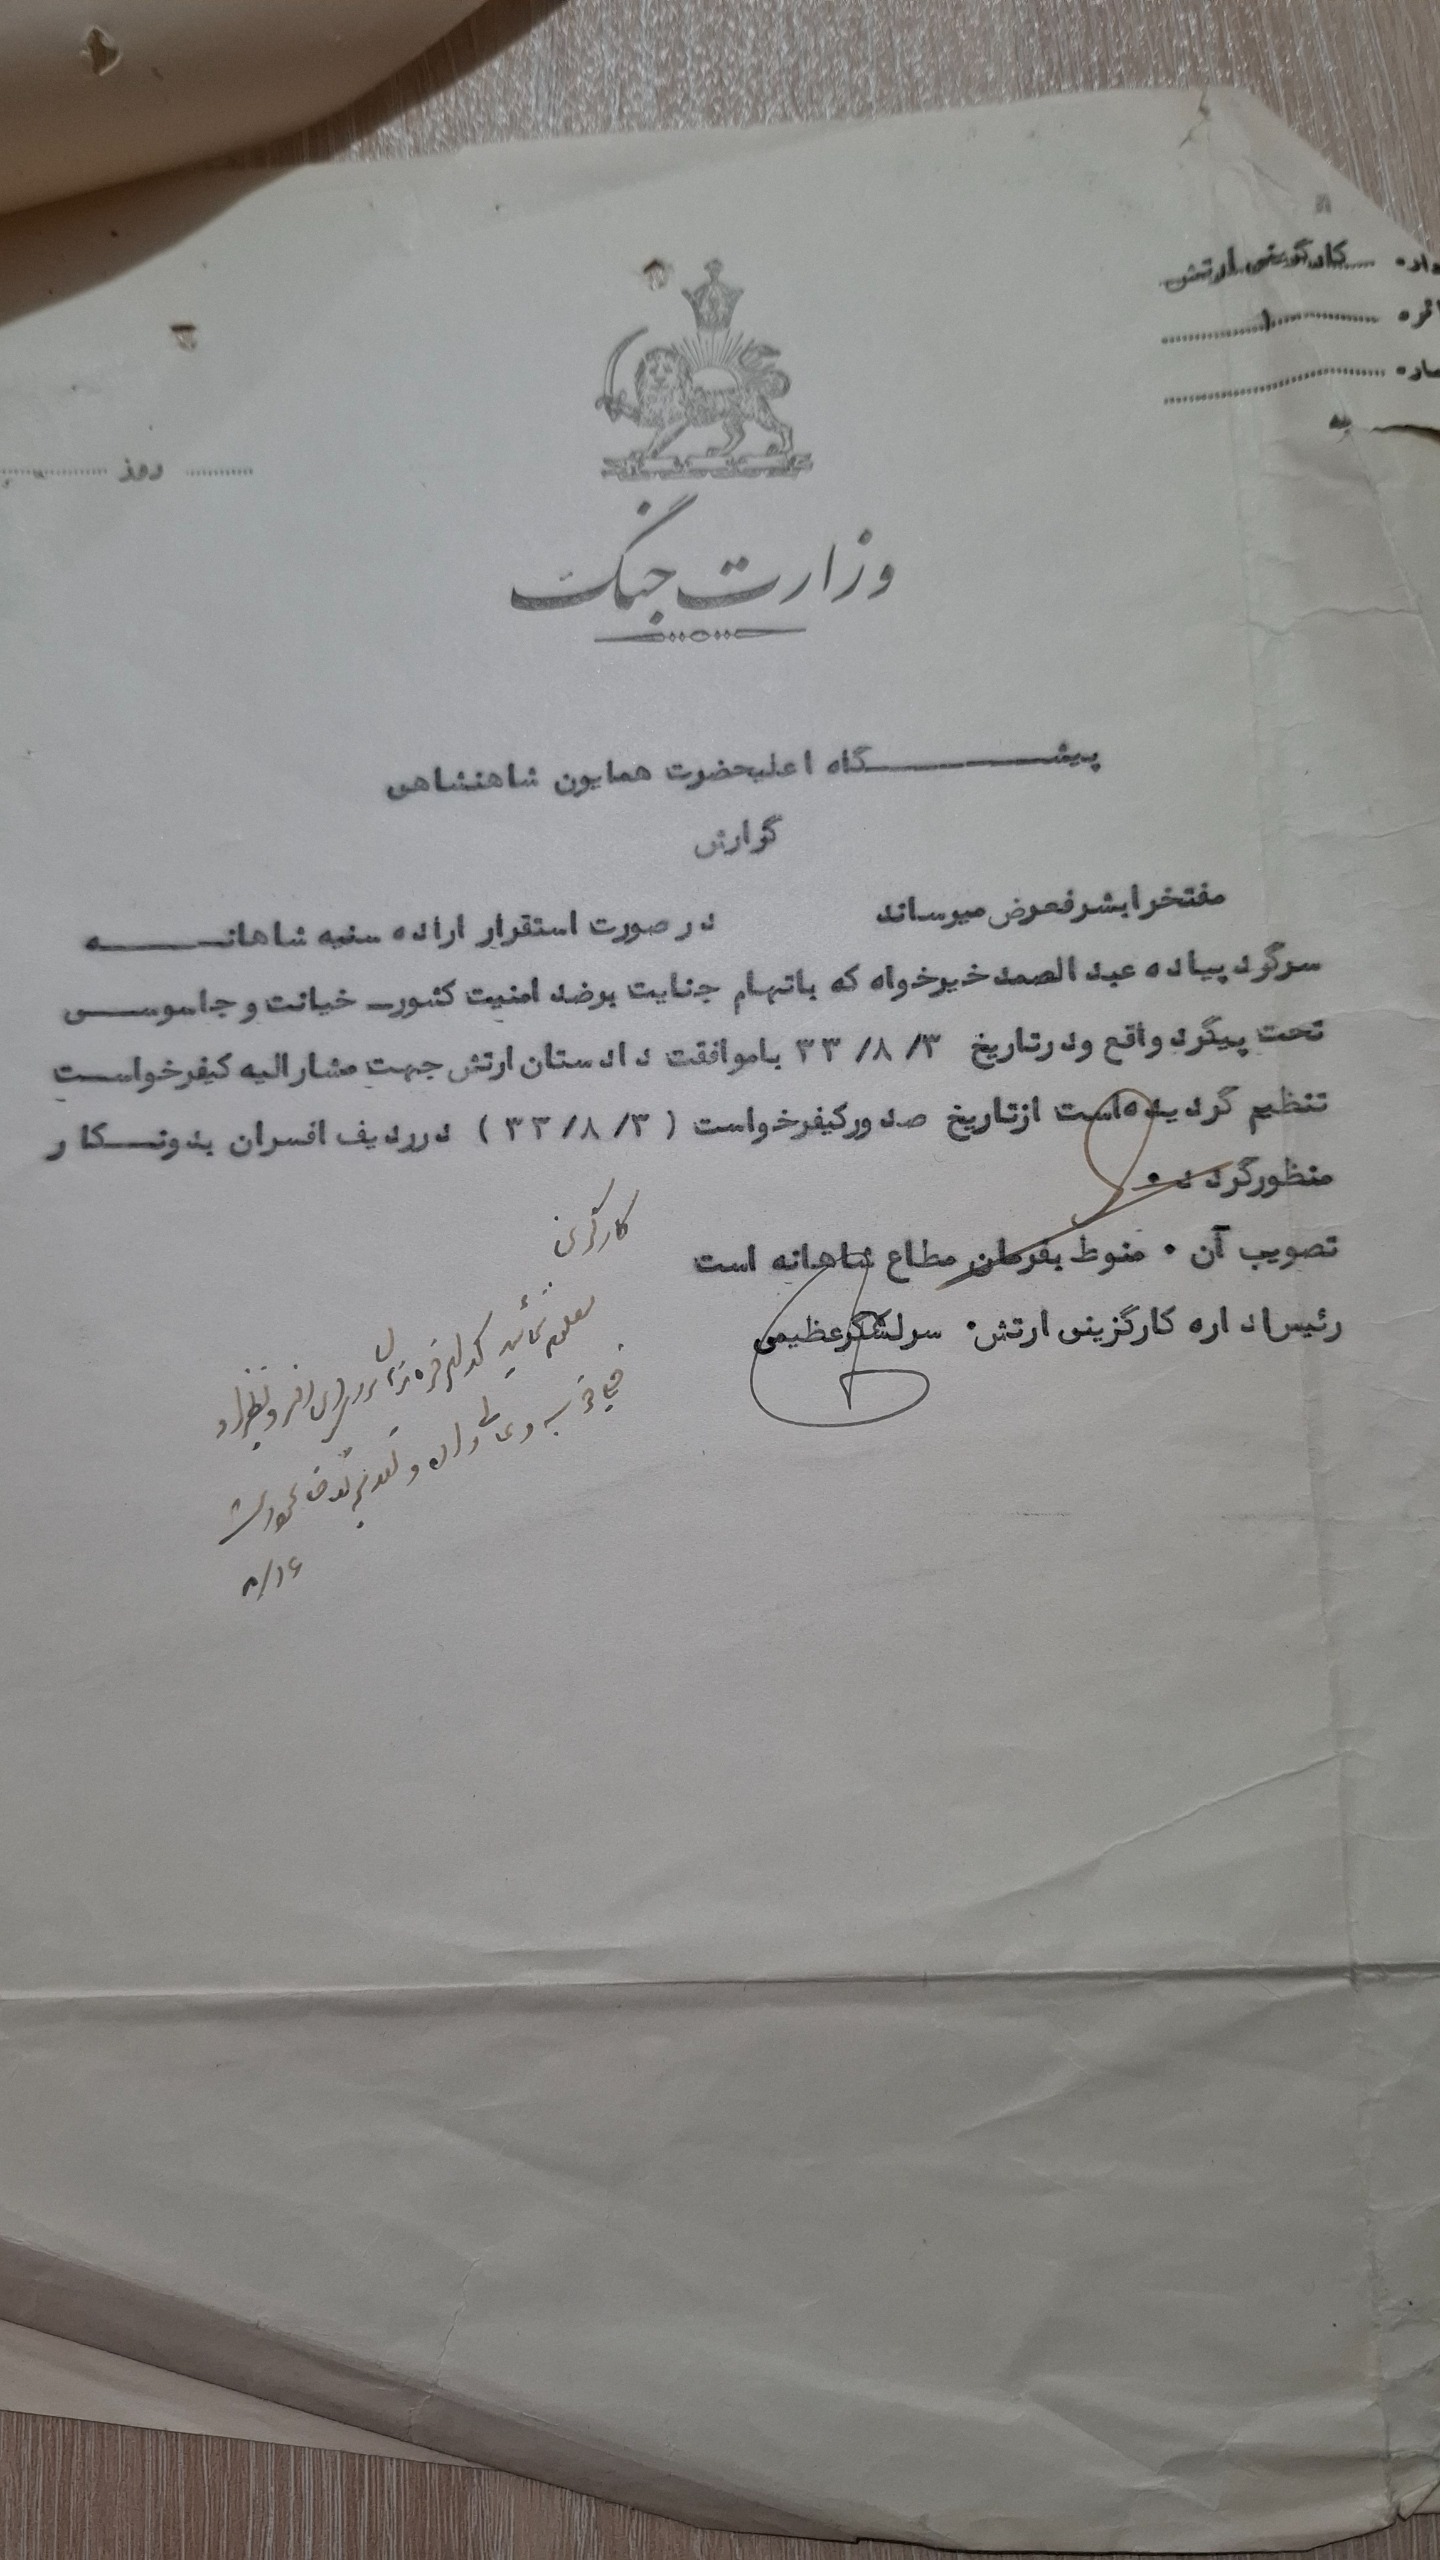 کارگزینی ارتش
۱
به
روز
وزارت جنگ
پیشگاه اعلیحضرت همایون شاهنشاهی
گزارش
مفتخرا بشرفعرض میرساند در صورت استقرار اراده سنیه شاهانه
سرگرد پیاده عبدالصمد خیرخواه که باتهام جنایت برضد امنیت کشور ـ خیانت و جاسوسی
تحت پیگرد واقع ودرتاریخ ۳۳/۸/۳ باموافقت دادستان ارتش جهت مشارالیه کیفرخواست
تنظیم گردیده‌است ازتاریخ صدورکیفرخواست ( ۳۳/۸/۳ ) درردیف افسران بدونکار
منظورگردد ۰
تصویب آن ۰ منوط بفرمان مطاع شاهانه است
رئیس اداره کارگزینی ارتش۰ سرلشگرعظیمی
کارگزینی
معلوم نمائید
۸/۱۶